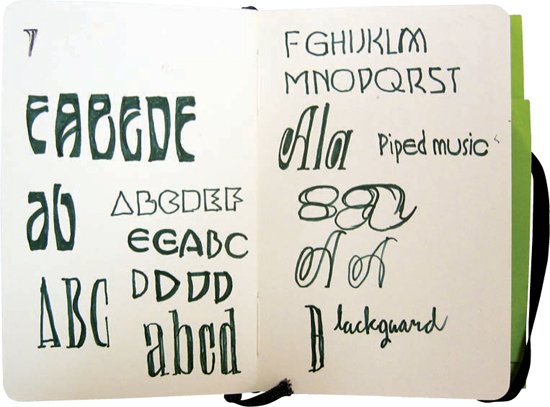 EABCDE
ab
ABCDEF
EEABC
DDDD
ABC
abcd
FGHIJKLM
MNOPQRST
Ala
Piped music
A A
Blackguard